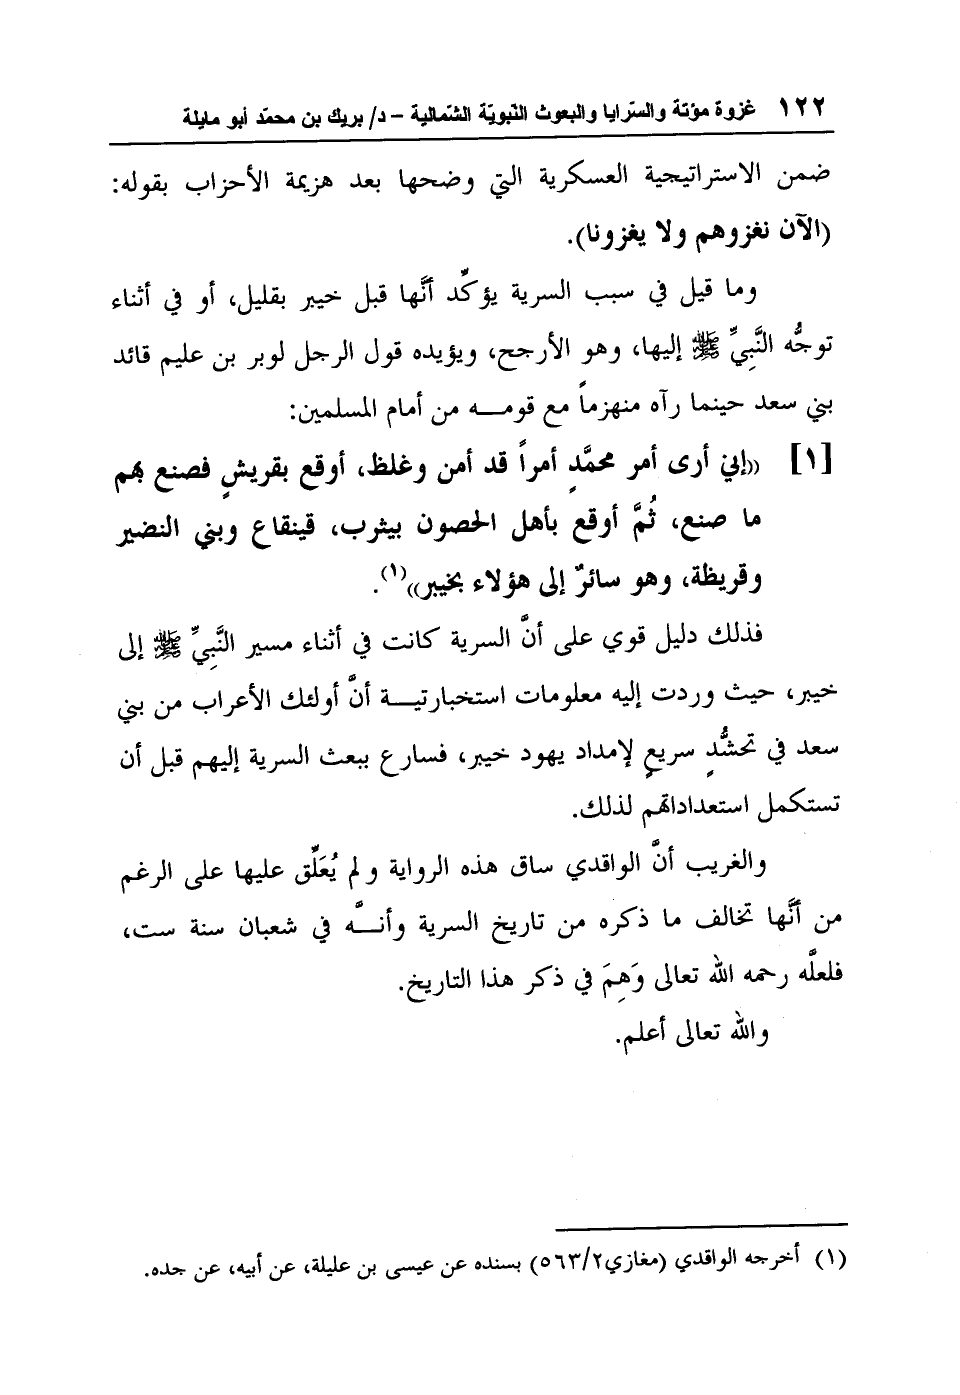 ١٢٢ غزوة مؤتة والسّرايا والبعوث النّبويّة الشّمالية – د/ بريك بن محمّد أبو مايلة
ضمن الاستراتيجية العسكرية التي وضحها بعد هزيمة الأحزاب بقوله:
(الآن نغزوهم ولا يغزونا).
وما قيل في سبب السرية يؤكِّد أنَّها قبل خيبر بقليل، أو في أثناء
توجُّه النَّبيِّ ﷺ إليها، وهو الأرجح، ويؤيده قول الرجل لوبر بن عليم قائد
بني سعد حينما رآه منهزماً مع قومـــه من أمام المسلمين:
[١] ((إني أرى أمر محمَّدٍ أمراً قد أمن وغلظ، أوقع بقريشٍ فصنع بهم
ما صنع، ثُمَّ أوقع بأهل الحصون بيثرب، قينقاع وبني النضير
وقريظة، وهو سائرٌ إلى هؤلاء بخيبر))(١).
فذلك دليل قوي على أنَّ السرية كانت في أثناء مسير النَّبيِّ ﷺ إلى
خيبر، حيث وردت إليه معلومات استخبارتيـــة أنَّ أولئك الأعراب من بني
سعد في تحشُّدٍ سريعٍ لإمداد يهود خيبر، فسارع ببعث السرية إليهم قبل أن
تستكمل استعداداتهم لذلك.
والغريب أنَّ الواقدي ساق هذه الرواية ولم يُعَلِّق عليها على الرغم
من أنَّها تخالف ما ذكره من تاريخ السرية وأنـــَّه في شعبان سنة ست،
فلعلَّه رحمه الله تعالى وَهِمَ في ذكر هذا التاريخ.
والله تعالى أعلم.
(١) أخرجه الواقدي (مغازي٥٦٣/٢) بسنده عن عيسى بن عليلة، عن أبيه، عن جده.